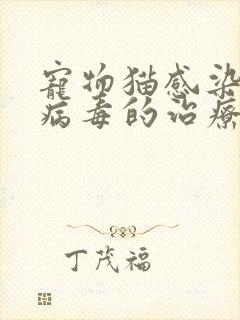 寵物猫感染
病毒的治療
丁茂福